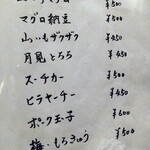 マグロ納豆 ¥500
山いもザクザク ¥450
月見とろろ ¥450
スーチカー ¥500
ヒラヤーチー ¥450
ポーク玉子 ¥600
梅・もろきゅう ¥500